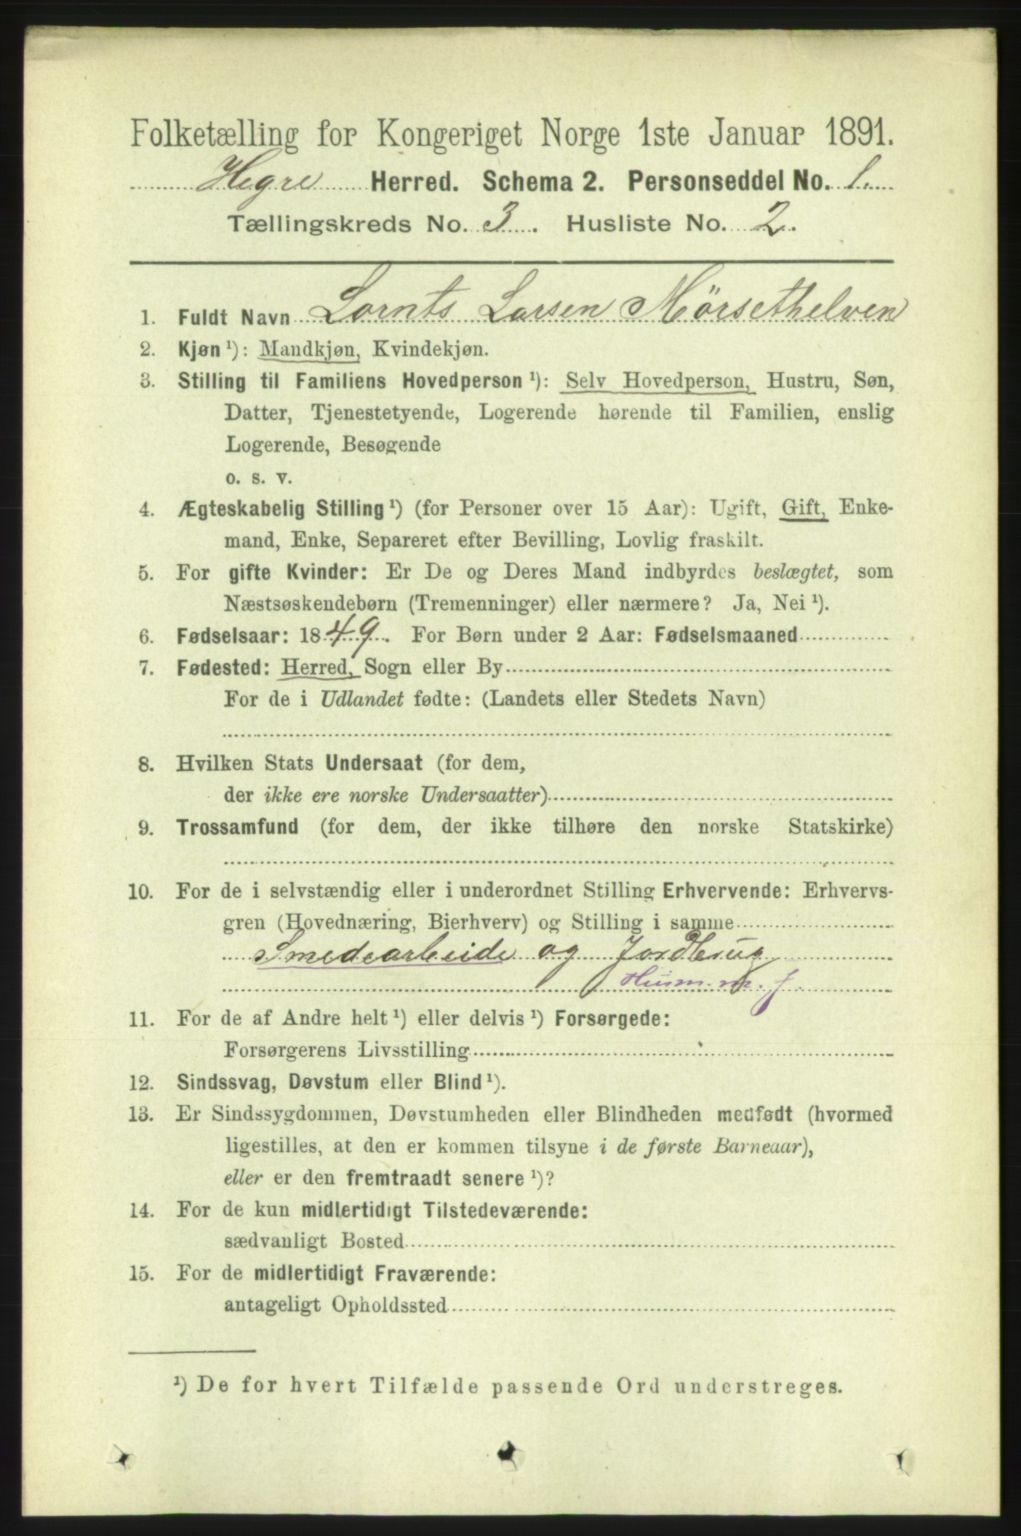 Folketælling for Kongeriget Norge 1ste Januar 1891.
Hegre Herred. Schema 2. Personseddel No. 1.
Tællingskreds No. 3. Husliste No. 2.
1. Fuldt Navn Lornts Larsen Mörsethelven
2. Kjøn ¹): Mandkjøn, Kvindekjøn.
3. Stilling til Familiens Hovedperson ¹): Selv Hovedperson, Hustru, Søn,
Datter, Tjenestetyende, Logerende hørende til Familien, enslig
Logerende, Besøgende
o. s. v.
4. Ægteskabelig Stilling ¹) (for Personer over 15 Aar): Ugift, Gift, Enke-
mand, Enke, Separeret efter Bevilling, Lovlig fraskilt.
5. For gifte Kvinder: Er De og Deres Mand indbyrdes beslægtet, som
Næstsøskendebørn (Tremenninger) eller nærmere? Ja, Nei ¹).
6. Fødselsaar: 1849. For Børn under 2 Aar: Fødselsmaaned
7. Fødested: Herred, Sogn eller By
For de i Udlandet fødte: (Landets eller Stedets Navn)
8. Hvilken Stats Undersaat (for dem,
der ikke ere norske Undersaatter)
9. Trossamfund (for dem, der ikke tilhøre den norske Statskirke)
10. For de i selvstændig eller i underordnet Stilling Erhvervende: Erhvervs-
gren (Hovednæring, Bierhverv) og Stilling i samme
Smedearbeide og Jordbrug
Husm. m. j.
11. For de af Andre helt ¹) eller delvis ¹) Forsørgede:
Forsørgerens Livsstilling
12. Sindssvag, Døvstum eller Blind ¹).
13. Er Sindssygdommen, Døvstumheden eller Blindheden medfødt (hvormed
ligestilles, at den er kommen tilsyne i de første Barneaar),
eller er den fremtraadt senere ¹)?
14. For de kun midlertidigt Tilstedeværende:
sædvanligt Bosted
15. For de midlertidigt Fraværende:
antageligt Opholdssted
¹) De for hvert Tilfælde passende Ord understreges.